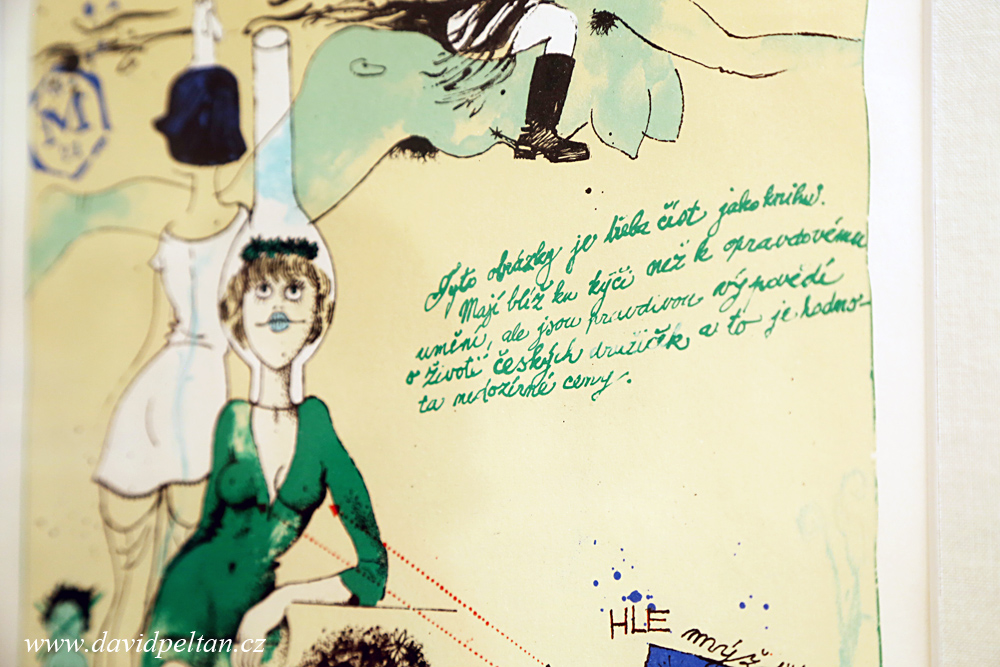 M
Tyto obrázky je třeba číst jako knihu.
Mají blíž ku kýči než k opravdovému
umění, ale jsou pravdivou výpovědí
o životě českých družiček a to je hodno-
ta nedozírné ceny.
HLE
myš
www.davidpeltan.cz